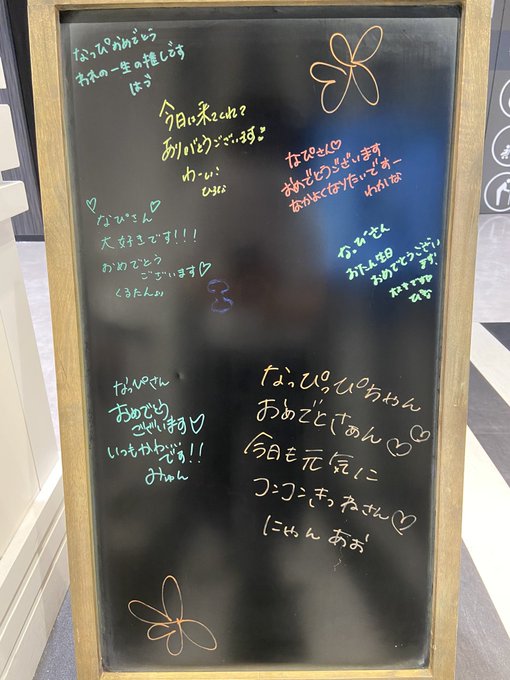 なっぴおめでとう
われの一生の推しです
はづ
今日は来てくれて
ありがとうございます
わーい!
なぴさん♡
おめでとうございます
なかよくなりたいですー
わかな
なぴさん♡
大好きです!!!
おめでとう
ございます♡
くるたん
なっぴさん
おたん生日
おめでとうござい
ます!
なっぴさん
おめでとう
ございます♡
いつもかわいい
です!!
みゅん
なっぴっぴちゃん
おめでとさぁん♡♡
今日も元気に
コンコンきつねさん♡
にゃん あお